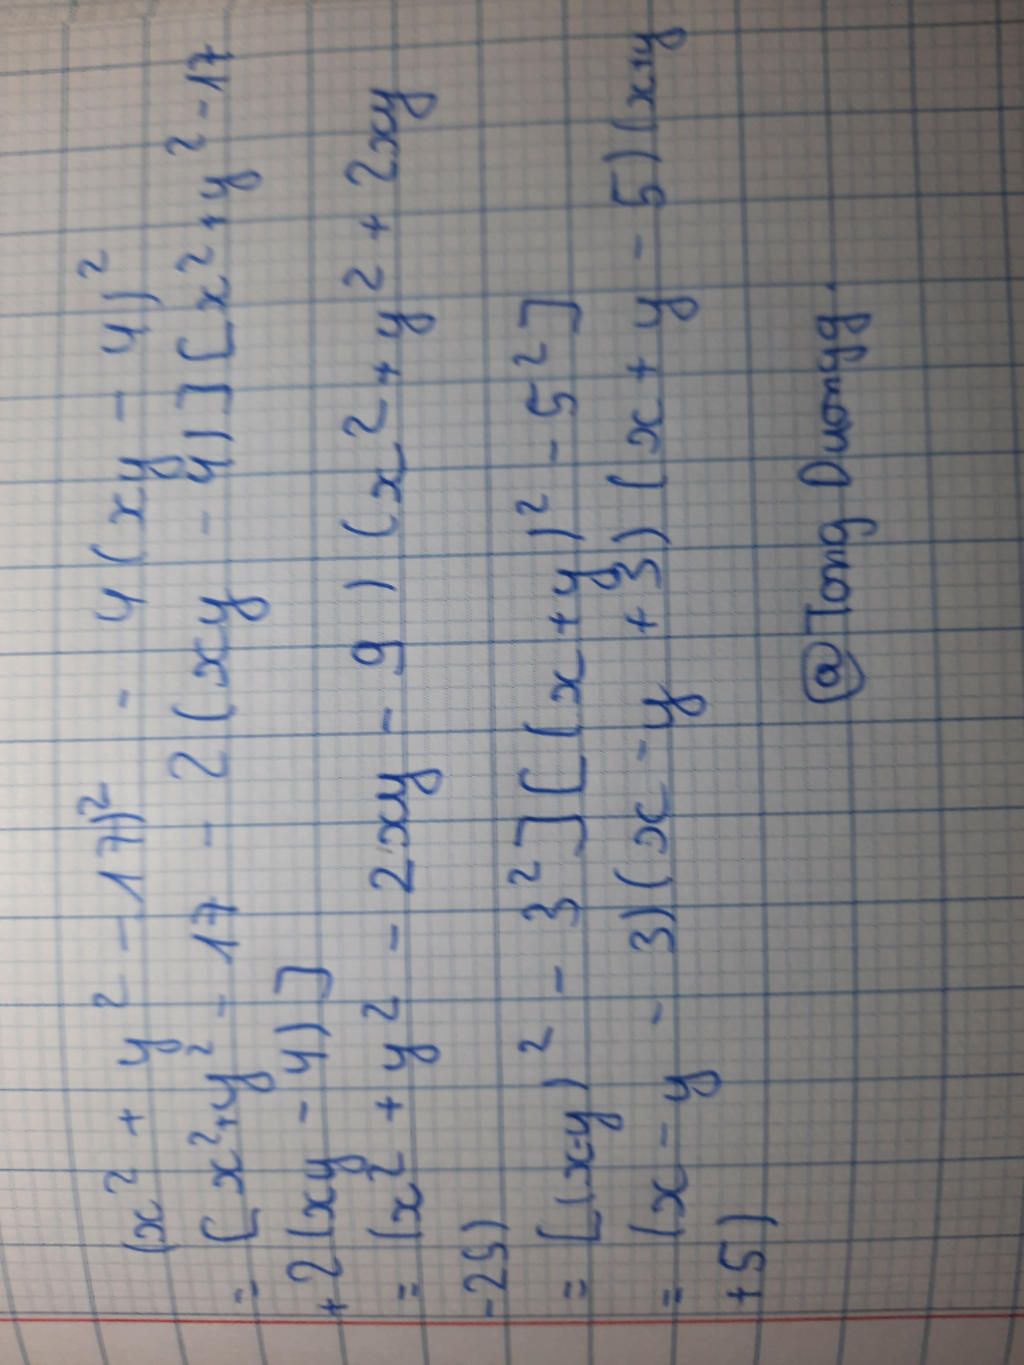 (x² + y² - 17)² - 4(xy - 4)²
= [x²+y² - 17 - 2(xy - 4)][x²+y²-17
+2(xy - 4)]
= (x² + y² - 2xy - 9)(x² + y² + 2xy
-25)
= [(x-y)² - 3²][(x+y)² - 5²]
= (x - y - 3)(x - y + 3)(x + y - 5)(x+y
+5)
@Tong Duongg.